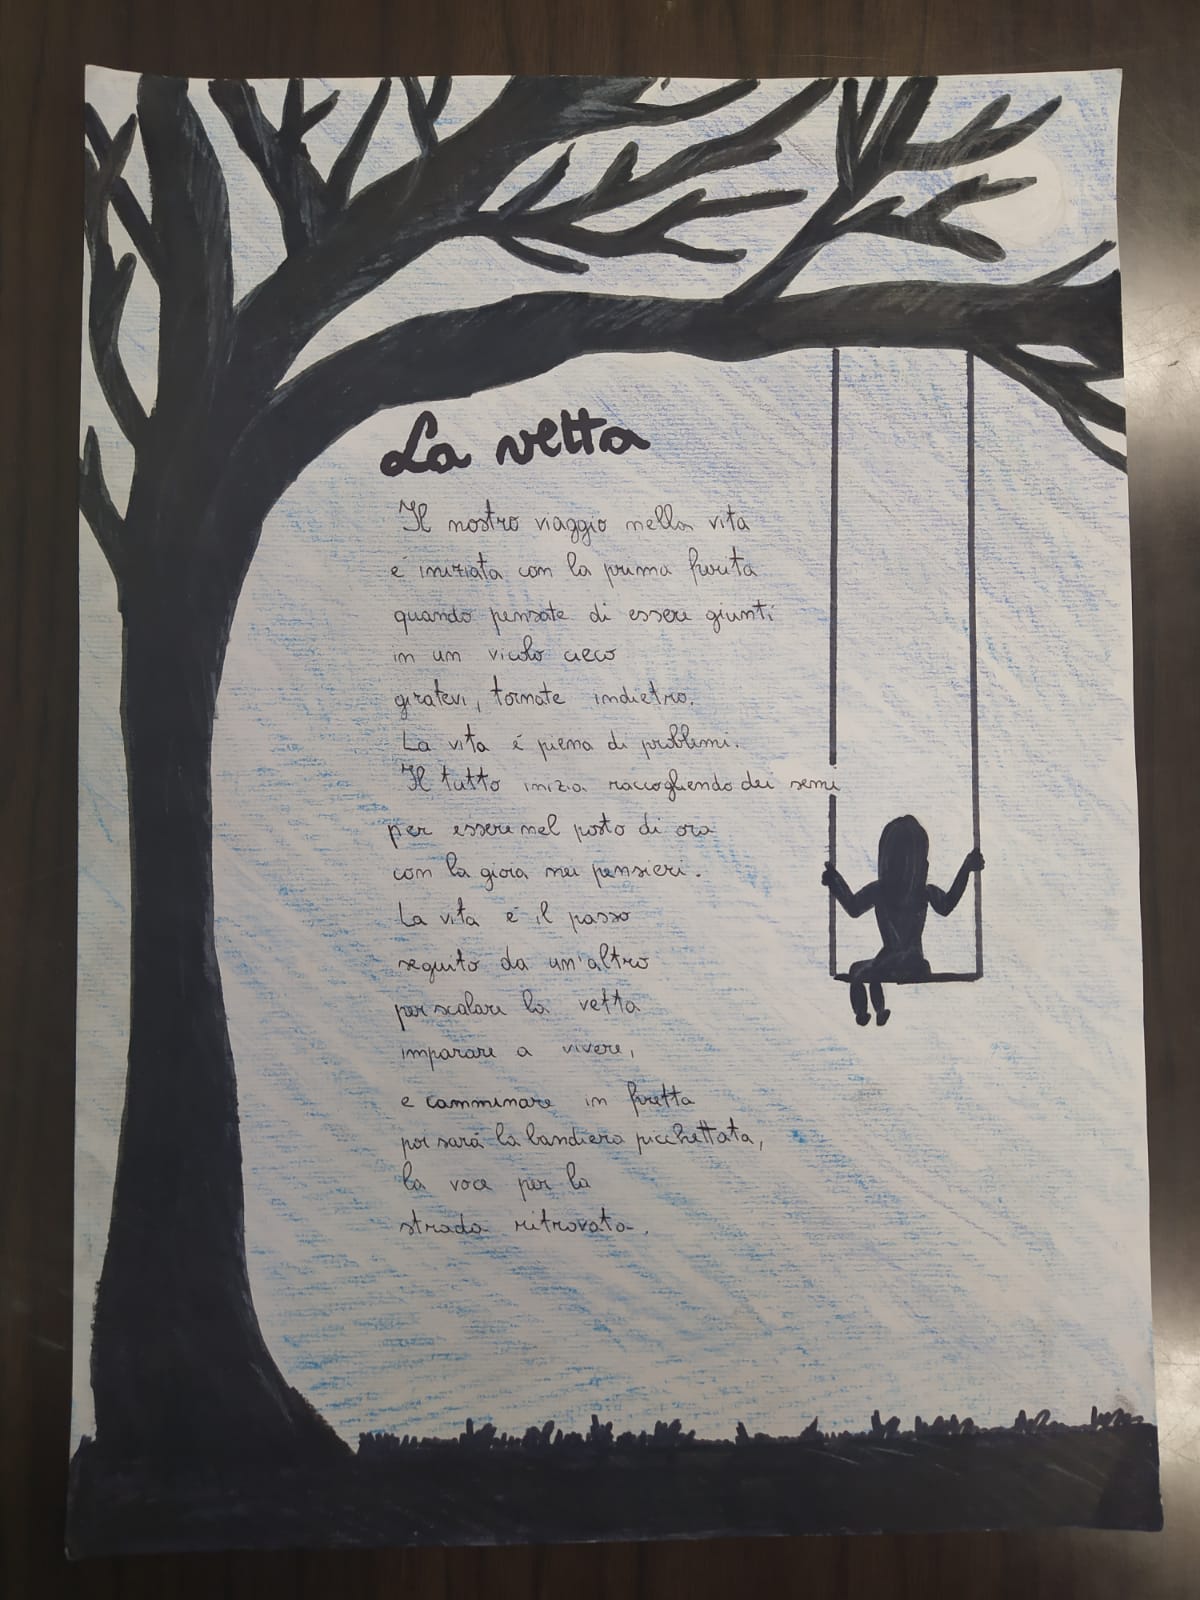 La vetta
Il nostro viaggio nella vita
è iniziata con la prima ferita
quando pensate di essere giunti
in un vicolo cieco
giratevi, tornate indietro.
La vita è piena di problemi.
Il tutto inizia raccogliendo dei semi
per essere nel posto di ora
con la gioia nei pensieri.
La vita è il passo
seguito da un'altro
per scalare la vetta
imparare a vivere,
e camminare in fretta
poi sarà la bandiera picchettata,
la voce per la
strada ritrovata.